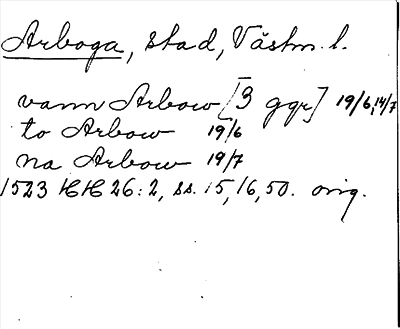 Arboga, stad, Västm. l.
vann Arbow [3 ggr] 19/6, 14/7
to Arbow 19/6
na Arbow 19/7
1523 HH 26:2, ss. 15, 16, 50. orig.